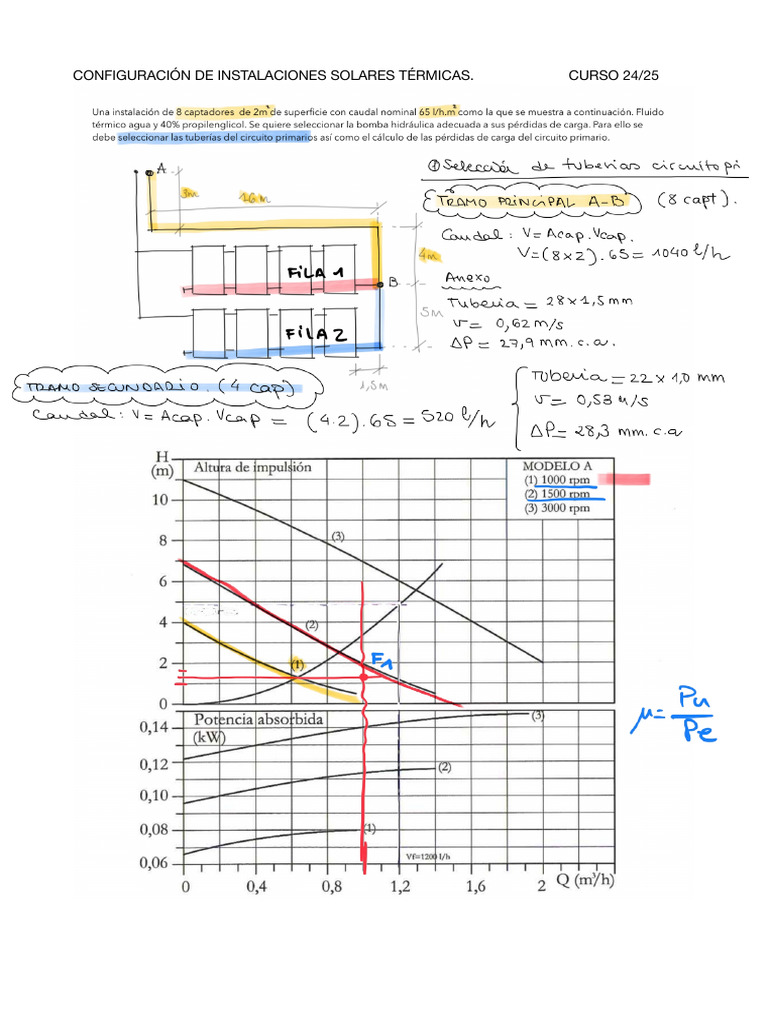 CONFIGURACIÓN DE INSTALACIONES SOLARES TÉRMICAS. CURSO 24/25
Una instalación de 8 captadores de 2m² de superficie con caudal nominal 65 l/h.m² como la que se muestra a continuación. Fluido
térmico agua y 40% propilenglicol. Se quiere seleccionar la bomba hidráulica adecuada a sus pérdidas de carga. Para ello se
debe seleccionar las tuberías del circuito primarios así como el cálculo de las pérdidas de carga del circuito primario.
① Selección de tuberias circuito pri
A
3m
16 m
TRAMO PRINCIPAL A-B (8 capt).
Caudal: V = Acap. Vcap.
V = (8 x 2) . 65 = 1040 l/h
4m
FILA 1
B
Anexo
Tuberia = 28 x 1,5 mm
v = 0,62 m/s
ΔP = 27,9 mm.c.a.
5M
FILA 2
1,5M
TRAMO SECUNDARIO. (4 cap)
Caudal: V = Acap. Vcap = (4.2). 65 = 520 l/h
Tuberia = 22 x 1,0 mm
v = 0,53 m/s
ΔP = 28,3 mm.c.a
H
(m)
Altura de impulsión
MODELO A
(1) 1000 rpm
(2) 1500 rpm
(3) 3000 rpm
10
8
6
4
2
0
(3)
(2)
(1)
F1
μ = Pu / Pe
Potencia absorbida
(kW)
0,14
0,12
0,10
0,08
0,06
(3)
(2)
(1)
Vf=1200 l/h
0 0,4 0,8 1,2 1,6 2 Q (m³/h)